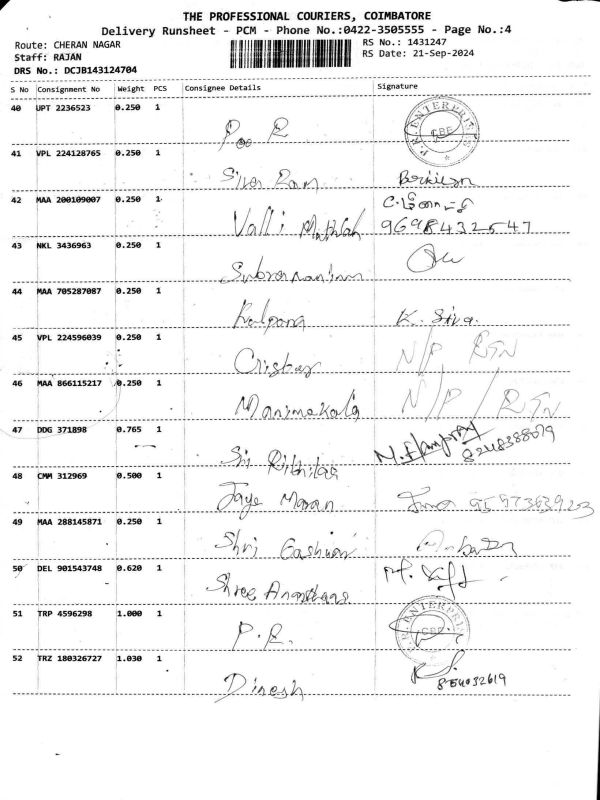 THE PROFESSIONAL COURIERS, COIMBATORE
Delivery Runsheet - PCM - Phone No.:0422-3505555 - Page No.:4
Route: CHERAN NAGAR
RS No.: 1431247
Staff: RAJAN
RS Date: 21-Sep-2024
DRS No.: DCJB143124704
S No Consignment No Weight PCS Consignee Details Signature
40 UPT 2236523 0.250 1
P.R. ENTERPRISES CBE
41 VPL 224128765 0.250 1
Siva Ram
42 MAA 200109007 0.250 1
Valli 9698432547
43 NKL 3436963 0.250 1
Subramaniam
44 MAA 705287087 0.250 1
Kalpana K. Siva.
45 VPL 224596039 0.250 1
N/P RTN
46 MAA 866115217 0.250 1
Manimekala N/P / RTN
47 DDG 371898 0.765 1
Sri
48 CMM 312969 0.500 1
Jaya Maran
49 MAA 288145871 0.250 1
Shri
50 DEL 901543748 0.620 1
Shree
51 TRP 4596298 1.000 1
P.R. P.R. ENTERPRISES CBE
52 TRZ 180326727 1.030 1
Dinesh